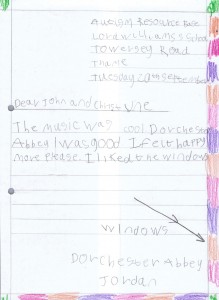 Resource Base
Lord Williams's School
Towersey Road
Thame
Tuesday
Dear John and
The music was cool Dorchester
Abbey I was good I felt happy
more Please. I liked the windows
windows
Dorchester Abbey
Jordan